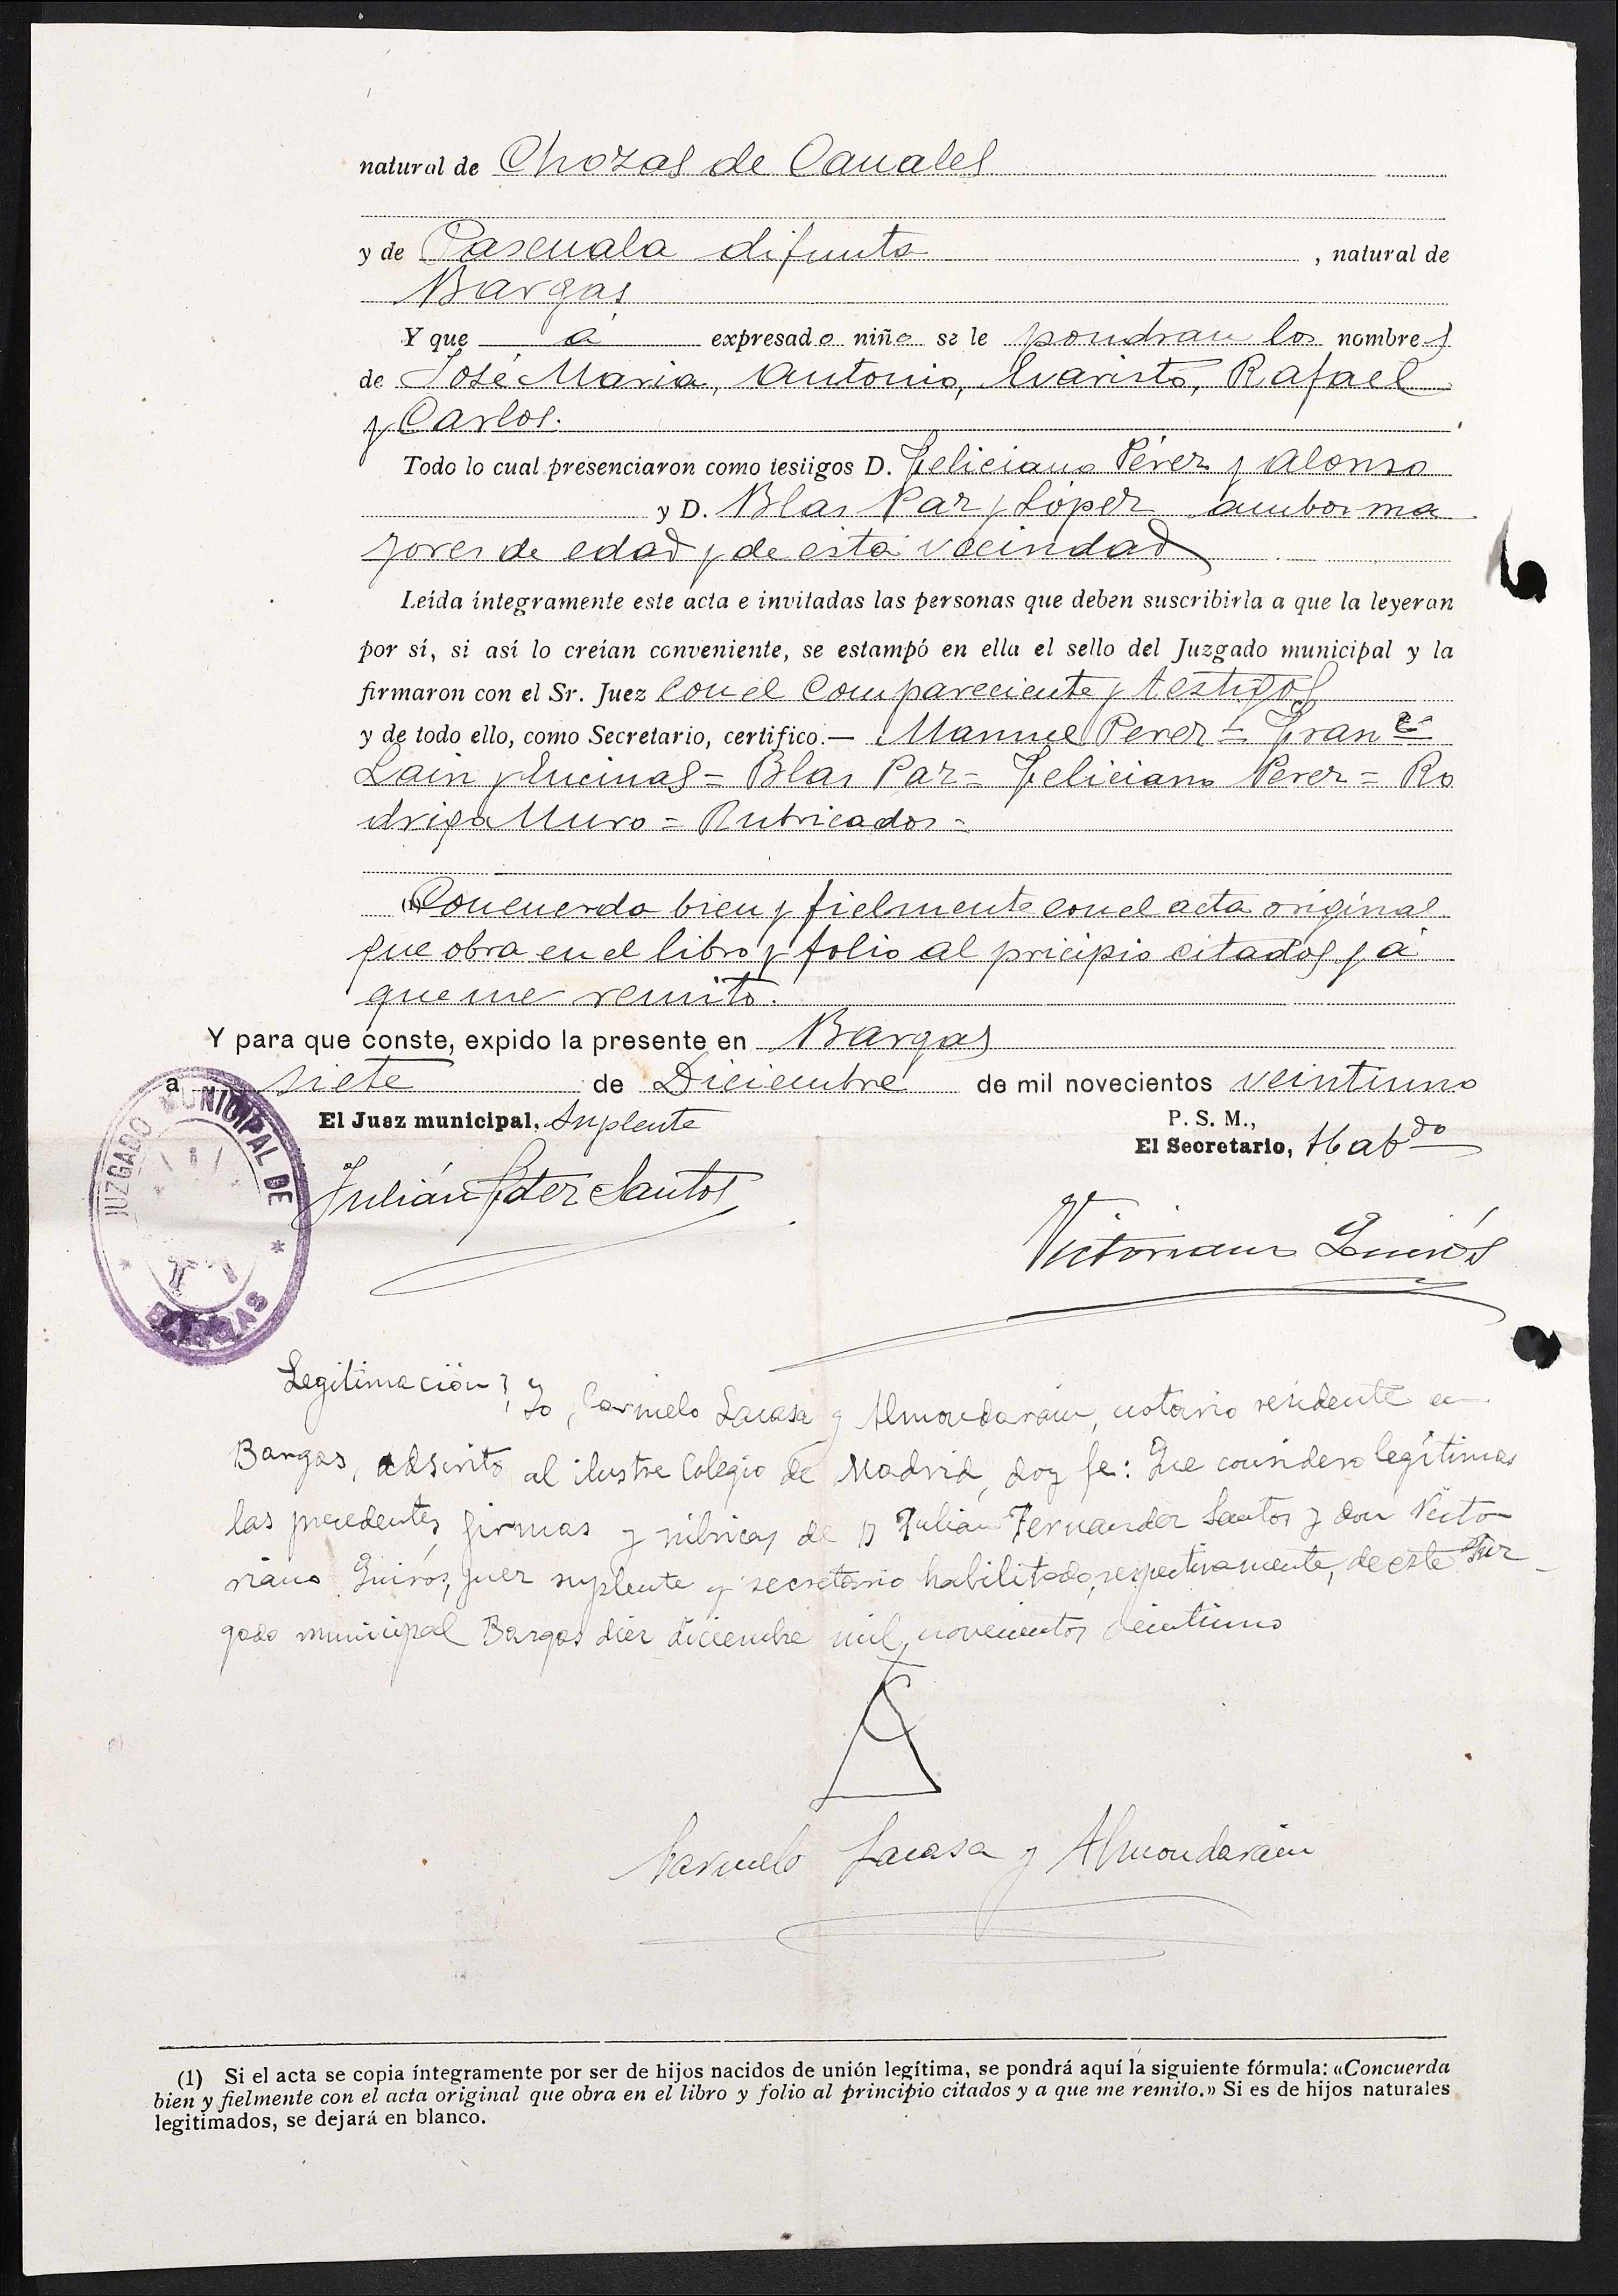 natural de Chozas de Canales
y de Pascuala difunta , natural de
Bargas
Y que á expresado niño se le pondran los nombres
de José Maria, Antonio, Evaristo, Rafael
y Carlos.
Todo lo cual presenciaron como testigos D. Feliciano Pérez y Alonso
y D. Blas Paz y López ambos ma
yores de edad y de esta vecindad
Leída íntegramente este acta e invitadas las personas que deben suscribirla a que la leyeran
por sí, si así lo creían conveniente, se estampó en ella el sello del Juzgado municipal y la
firmaron con el Sr. Juez con el Compareciente y testigos
y de todo ello, como Secretario, certifico.— Manuel Perez = Franco
Lain y Encinas = Blas Paz = Feliciano Perez = Ro
drigo Muro = Rubricados =
(1) Concuerda bien y fielmente con el acta original
que obra en el libro y folio al pricipio citados y á
que me remito.
Y para que conste, expido la presente en Bargas
a siete de Diciembre de mil novecientos veintiuno
El Juez municipal, Suplente
P. S. M.,
El Secretario, Habdo
JUZGADO MUNICIPAL DE
BARGAS
Julián Fdez Santos
Victoriano Quirós
Legitimación; Yo, Carmelo Lacasa y Almondarain, notario residente en
Bargas, adscrito al ilustre Colegio de Madrid, doy fe: Que considero legítimas
las precedentes firmas y rúbricas de D Julián Fernandez Santos y don Victo-
riano Quirós, juez suplente y secretario habilitado, respectivamente, de este Juz-
gado municipal Bargas diez diciembre mil novecientos veintiuno
Carmelo Lacasa y Almondarain
(1) Si el acta se copia íntegramente por ser de hijos nacidos de unión legítima, se pondrá aquí la siguiente fórmula: «Concuerda
bien y fielmente con el acta original que obra en el libro y folio al principio citados y a que me remito.» Si es de hijos naturales
legitimados, se dejará en blanco.